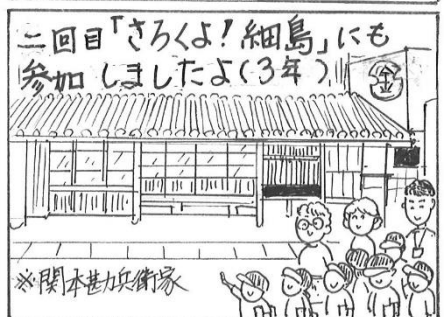 二回目「さろくよ！細島」にも
参加しましたよ(3年)!!
金
※関本勘兵衛家